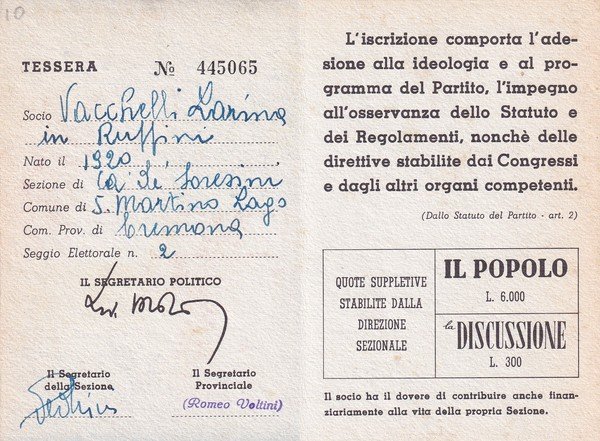 10
TESSERA № 445065
Socio Vacchelli Larina
in Ruffini
Nato il 1920
Sezione di Ca' de' Soresini
Comune di S. Martino Lago
Com. Prov. di Cremona
Seggio Elettorale n. 2
IL SEGRETARIO POLITICO
Il Segretario
della Sezione
Il Segretario
Provinciale
(Romeo Voltini)
L'iscrizione comporta l'ade-
sione alla ideologia e al pro-
gramma del Partito, l'impegno
all'osservanza dello Statuto e
dei Regolamenti, nonchè delle
direttive stabilite dai Congressi
e dagli altri organi competenti.
(Dallo Statuto del Partito - art. 2)
QUOTE SUPPLETIVE
STABILITE DALLA
DIREZIONE
SEZIONALE
IL POPOLO
L. 6.000
la DISCUSSIONE
L. 300
Il socio ha il dovere di contribuire anche finan-
ziariamente alla vita della propria Sezione.